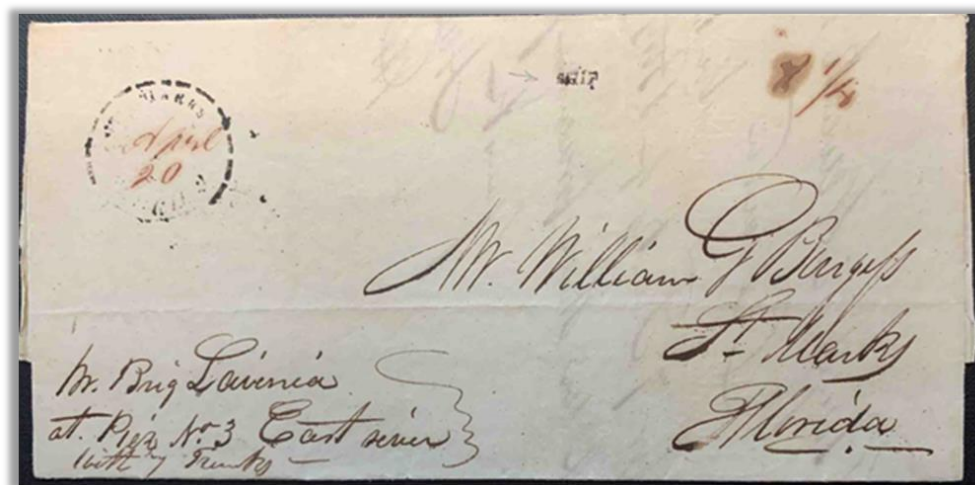 SHIP
8 1/2
April
20
Mr. William G Burgess
St. Marks
Florida
Pr. Brig Lavinia
at. Pier No. 3 East river
with 7 Trunks